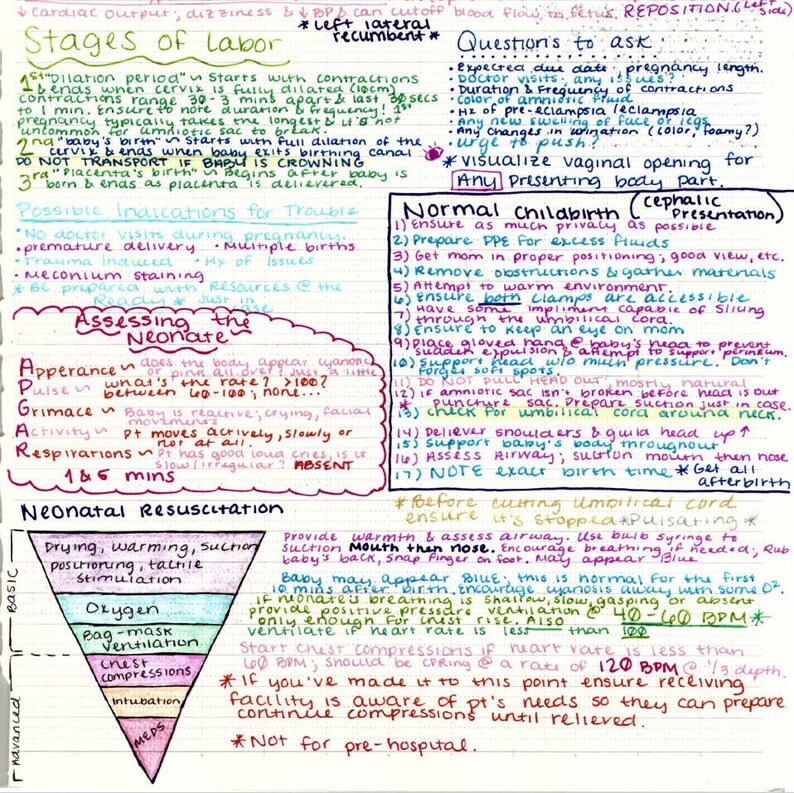 ↓ Cardiac output, dizziness & ↓ BP & can cutoff blood flow to fetus. REPOSITION. (Left side)
* Left lateral
recumbent *
Stages of Labor
1st "Dilation period" ~ Starts with contractions
& ends when cervix is fully dilated (10cm)
contractions range 30-3 mins apart & last 30 secs
to 1 min. Ensure to note duration & frequency! 1st
pregnancy typically takes the longest & it's not
uncommon for amniotic sac to break.
2nd "baby's birth" ~ Starts with full dilation of the
cervix & ends when baby exits birthing canal
DO NOT TRANSPORT IF BABY IS CROWNING
3rd "Placenta's birth" ~ Begins after baby is
born & ends as placenta is delievered.
Questions to ask
• Expected due date, pregnancy length.
• Doctor visits, any issues?
• Duration & Frequency of contractions
• Color of amniotic fluid
• Hx of pre-eclampsia/eclampsia
• Any new swelling of face or legs
• Any changes in urination (color, foamy?)
• Urge to push?
* visualize vaginal opening for
Any presenting body part.
Possible Indications for Trouble
• No doctor visits during pregnancy.
• premature delivery • Multiple births
• Trauma Induced • Hx of Issues
• Meconium staining
* Be prepared with Resources @ the
Ready * Just in
case
Assessing the
Neonate
Apperance ~ does the body appear cyanotic
or pink all over? Just a little
Pulse ~ what's the rate? >100?
between 60-100; none...
Grimace ~ Baby is reactive; crying, facial
movements
Activity ~ Pt moves actively, slowly or
not at all.
Respirations ~ Pt has good loud cries, is it
slow/irregular? ABSENT
1 & 5 mins
Normal Childbirth (cephalic
Presentation)
1) Ensure as much privacy as possible
2) Prepare PPE for excess fluids
3) Get mom in proper positioning; good view, etc.
4) Remove obstructions & gather materials
5) Attempt to warm environment.
6) Ensure both clamps are accessible
7) Have some impliment capable of slicing
through the umbilical cord.
8) Ensure to keep an eye on mom
9) Place gloved hand @ baby's head to prevent
sudden expulsion & attempt to support perineum.
10) Support head w/o much pressure. Don't
forget soft spots.
11) DO NOT PULL HEAD OUT, mostly natural
12) if amniotic sac isn't broken before head is out
* puncture sac. Prepare suction just in case.
13) check for umbilical cord around neck.
14) Deliever shoulders & guild head up ↑
15) Support baby's body throughout
16) Assess Airway; suction mouth then nose
17) NOTE exact birth time * Get all
afterbirth
* Before cutting umbilical cord
ensure it's stopped *Pulsating *
Neonatal Resuscitation
Basic
Advanced
Drying, warming, suction
positioning, tactile
stimulation
Oxygen
Bag-mask
ventilation
Chest
compressions
Intubation
MEDS
Provide warmth & assess airway. Use bulb syringe to
suction Mouth then nose. Encourage breathing if needed; Rub
baby's back, snap finger on foot. May appear Blue
Baby may appear BLUE; this is normal for the first
10 mins after birth, encourage cyanosis away with some O².
If neonate's breathing is shallow, slow, gasping or absent
provide positive pressure ventilation @ 40-60 BPM *
only enough for chest rise. Also
ventilate if heart rate is less than 100
Start chest compressions if heart rate is less than
60 BPM; should be CPRing @ a rate of 120 BPM @ 1/3 depth.
* If you've made it to this point ensure receiving
facility is aware of pt's needs so they can prepare
continue compressions until relieved.
* Not for pre-hospital.